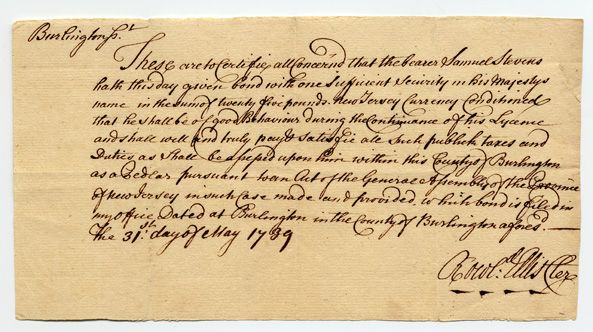 Burlington ss.t
These are to Certifie all Concernd that the bearer Samuel Stevens
hath this day given bond with one Sufficient Security in his Majestys
name in the sum of twenty five pounds New Jersey Currency Conditioned
that he shall be of good Behaviour during the Continuance of his Lycence
and shall well and truly pay & satisfie all Such publick taxes and
Duties as Shall be assessed upon him within this County of Burlington
as a Pedlar pursuant to an Act of the General Assembly of the Province
of new Jersey in such Case made and provided, which bond is filed in
my office Dated at Burlington in the County of Burlington afores.d
the 31.st day of May 1739
Rowl.d Ellis Cler